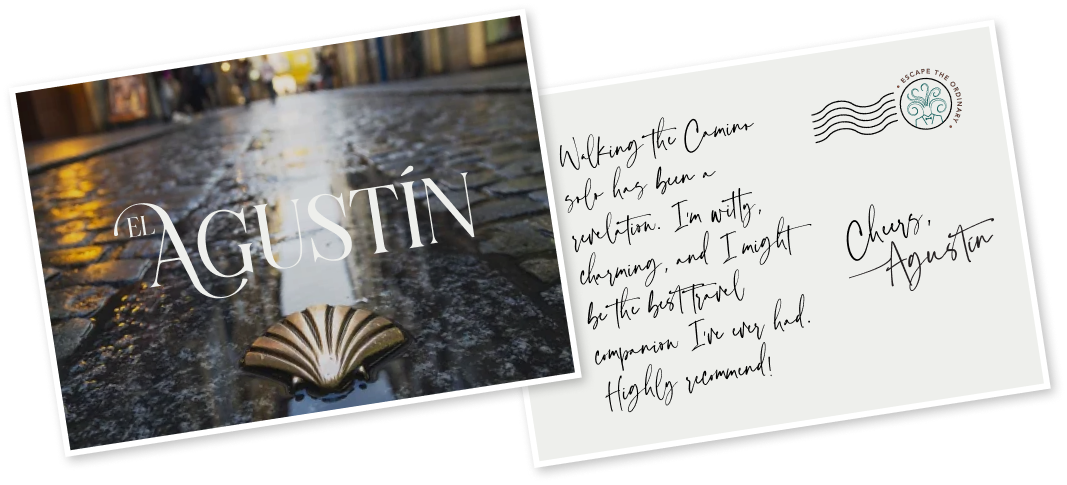 EL
AGUSTÍN
Walking the Camino
solo has been a
revelation. I'm witty,
charming, and I might
be the best travel
companion I've ever had.
Highly recommend!
• ESCAPE THE ORDINARY •
Cheers,
Agustín